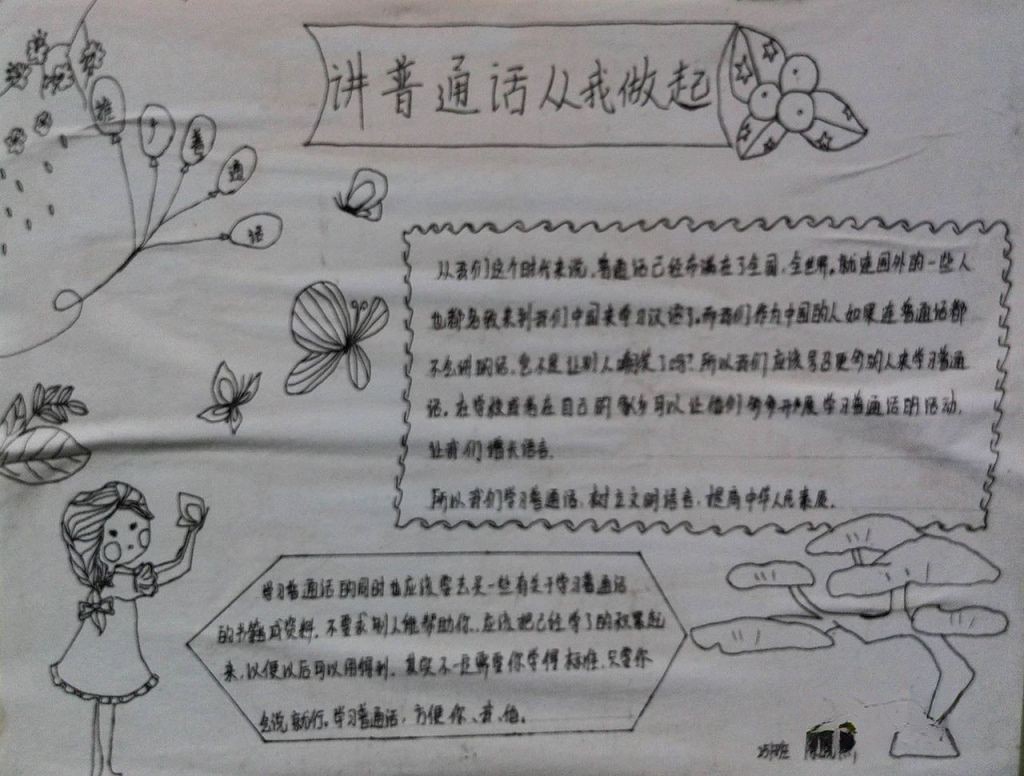 讲普通话从我做起
推
广
普
通
话
从我们这个时代来说，普通话已经布满在了全国，全世界，就连国外的一些人
也都名我来到我们中国来学习汉语了，而我们作为中国的人如果连普通话都
不会讲的话，岂不是让别人嘲笑了吗？所以我们应该号召更多的人来学习普通
话，在学校或者在自己的家乡可以让他们多多开展学习普通话的活动，
让我们增长语言。
所以我们学习普通话，树立文明语言，提高中华人民素质。
学习普通话的同时也应该要去买一些有关于学习普通话
的书籍或资料，不要求别人能帮助你，应该把已经学了的积累起
来，以便以后可以用得到。其实不一定需要你学得标准，只要你
会说就行。学习普通话，方便你、我、他。